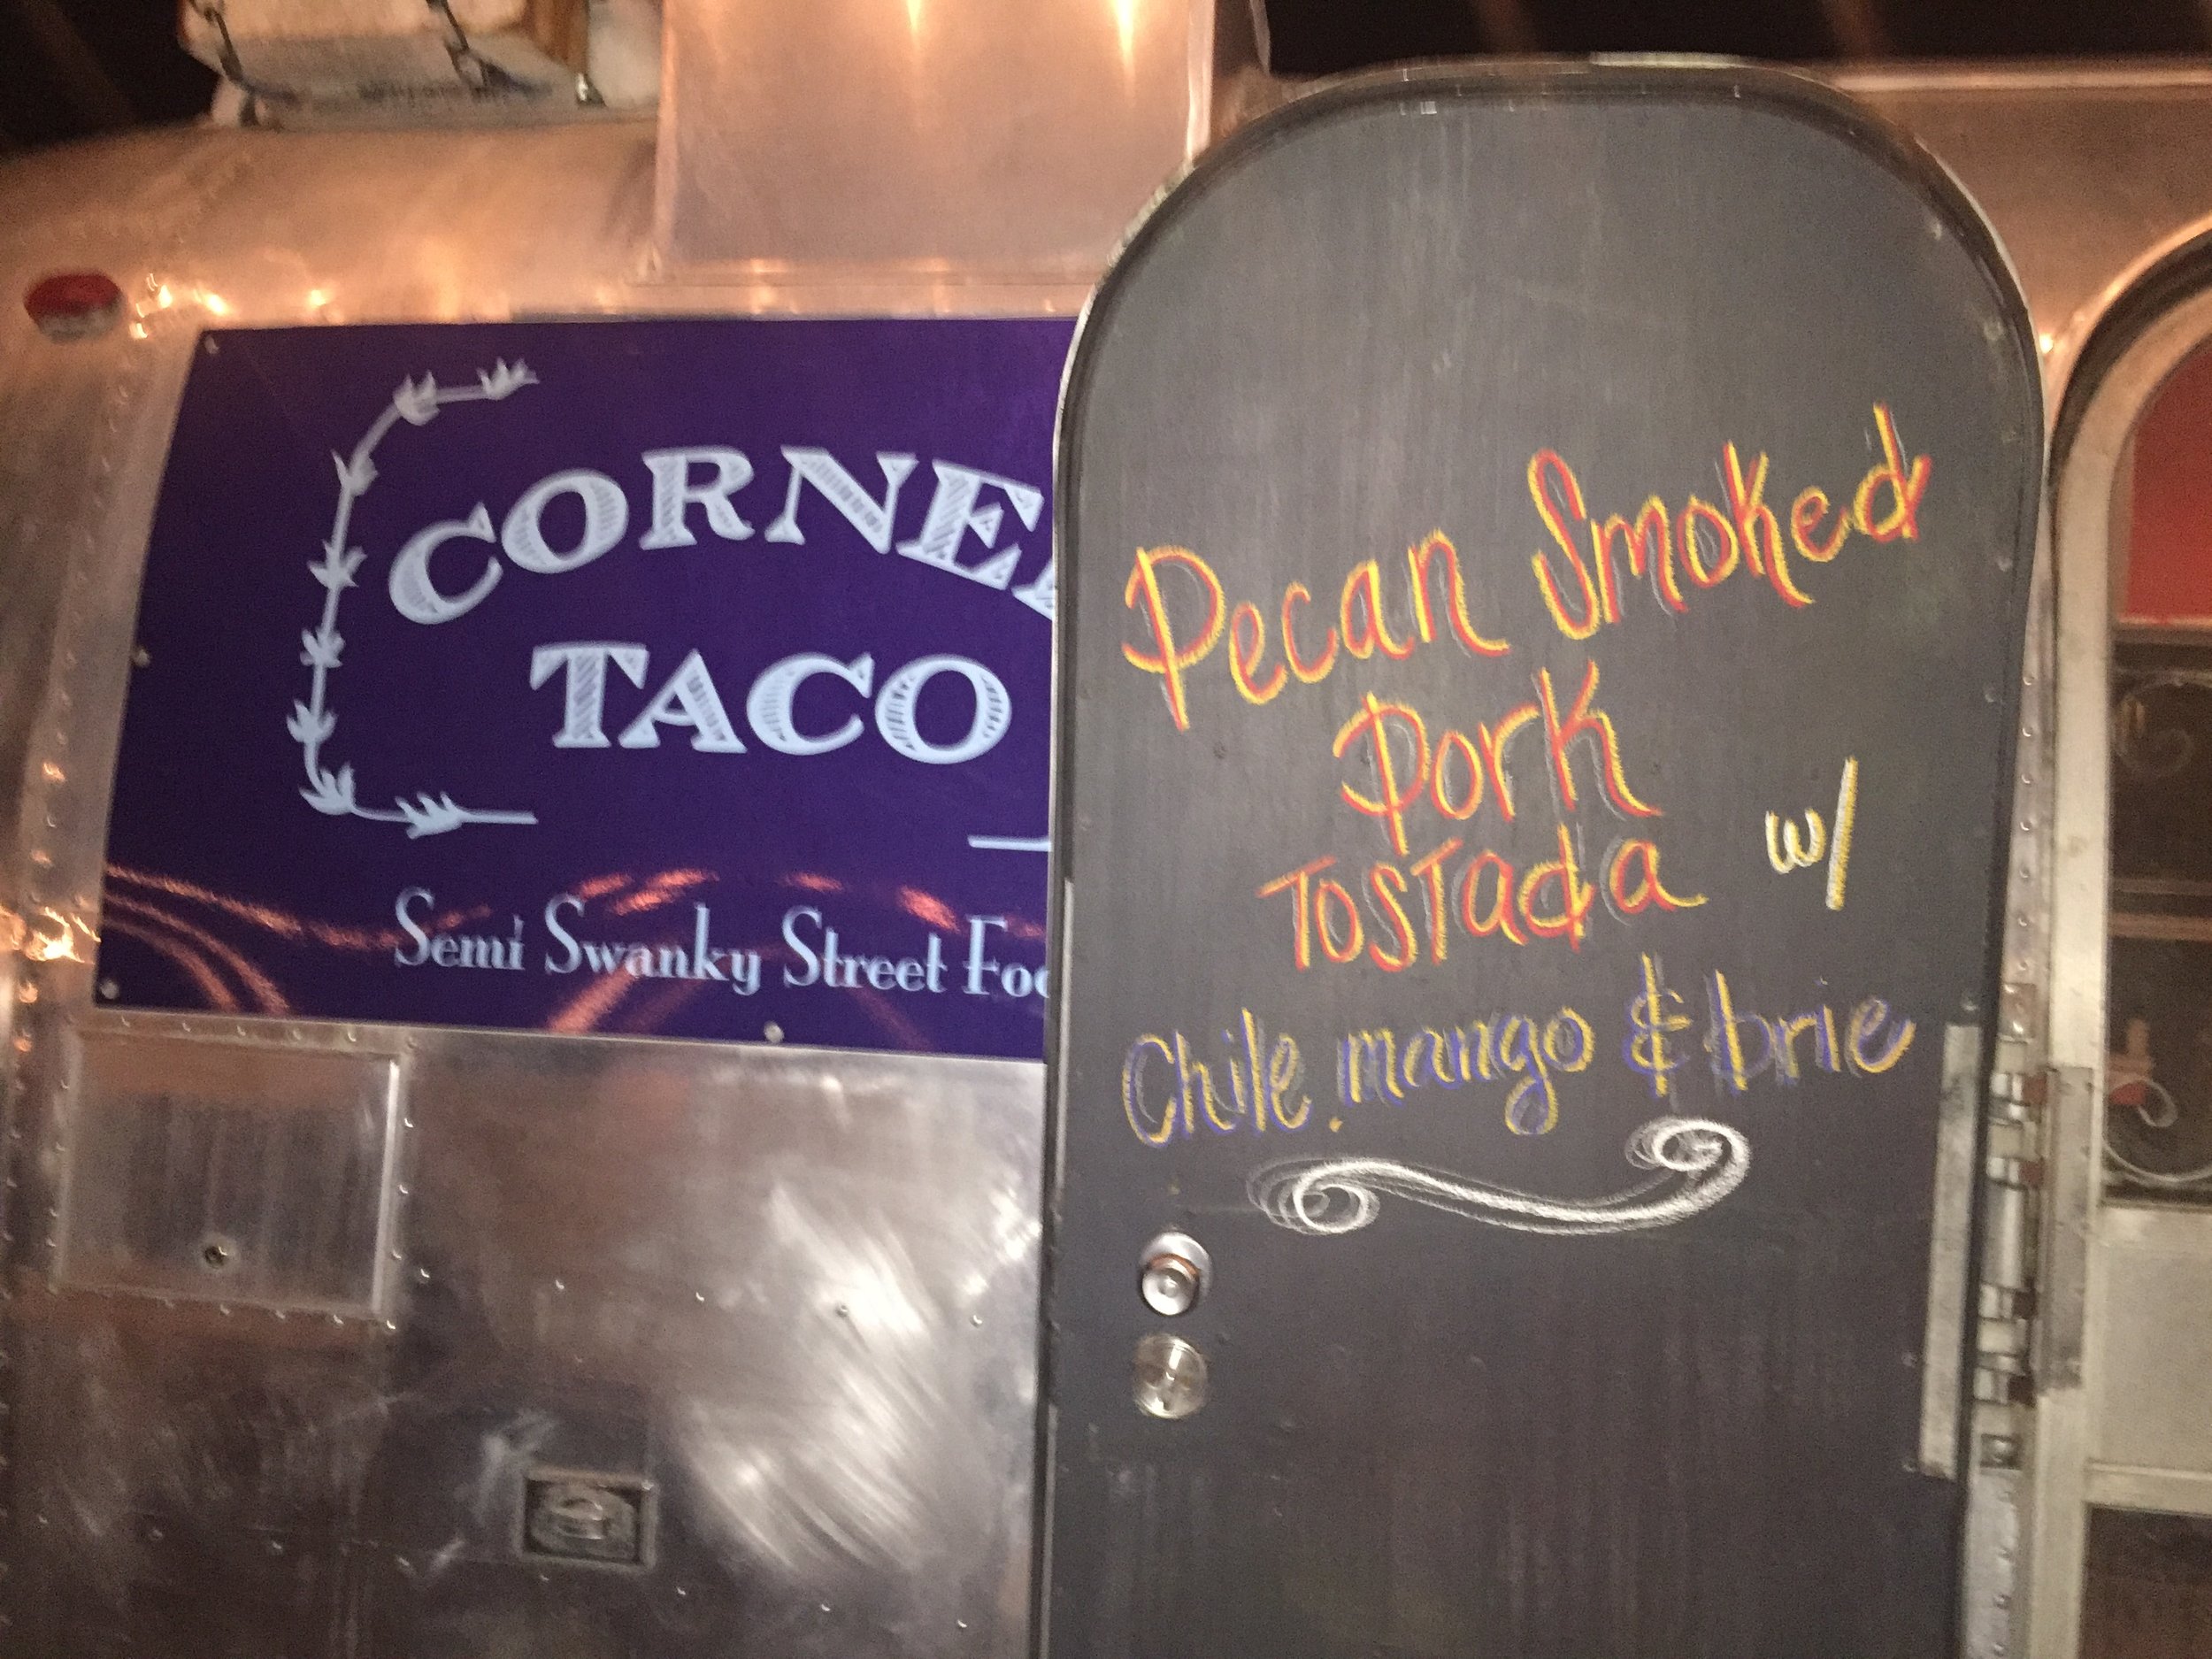 CORNE
TACO
Semi Swanky Street Foo
Pecan Smoked
Pork
Tostada w/
Chile, mango & brie